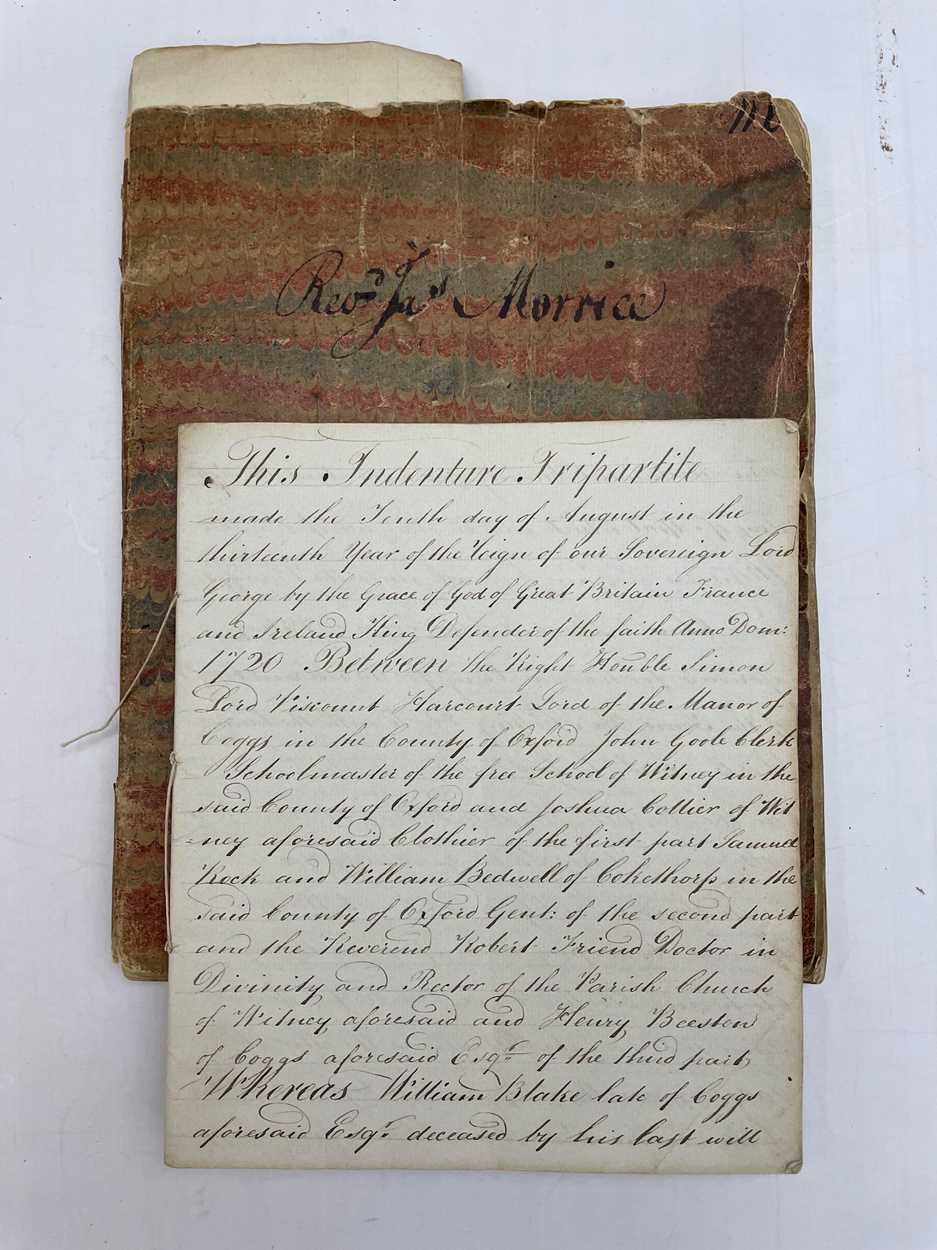 Revd. Jas. Morrice
This Indenture Tripartite
made the Tenth day of August in the
thirteenth Year of the Reign of our Sovereign Lord
George by the Grace of God of Great Britain France
and Ireland King Defender of the faith Anno Dom:
1720 Between the Right Honble Simon
Lord Viscount Harcourt Lord of the Manor of
Coggs in the County of Oxford John Goole Clerk
Schoolmaster of the free School of Witney in the
said County of Oxford and Joshua Collier of Wit
ney aforesaid Clothier of the first part Samuel
Rock and William Bedwell of Cokethorp in the
said County of Oxford Gent: of the second part
and the Reverend Robert Friend Doctor in
Divinity and Rector of the Parish Church
of Witney aforesaid and Henry Beeston
of Coggs aforesaid Esqr. of the third part
Whereas William Blake late of Coggs
aforesaid Esqr. deceased by his last will